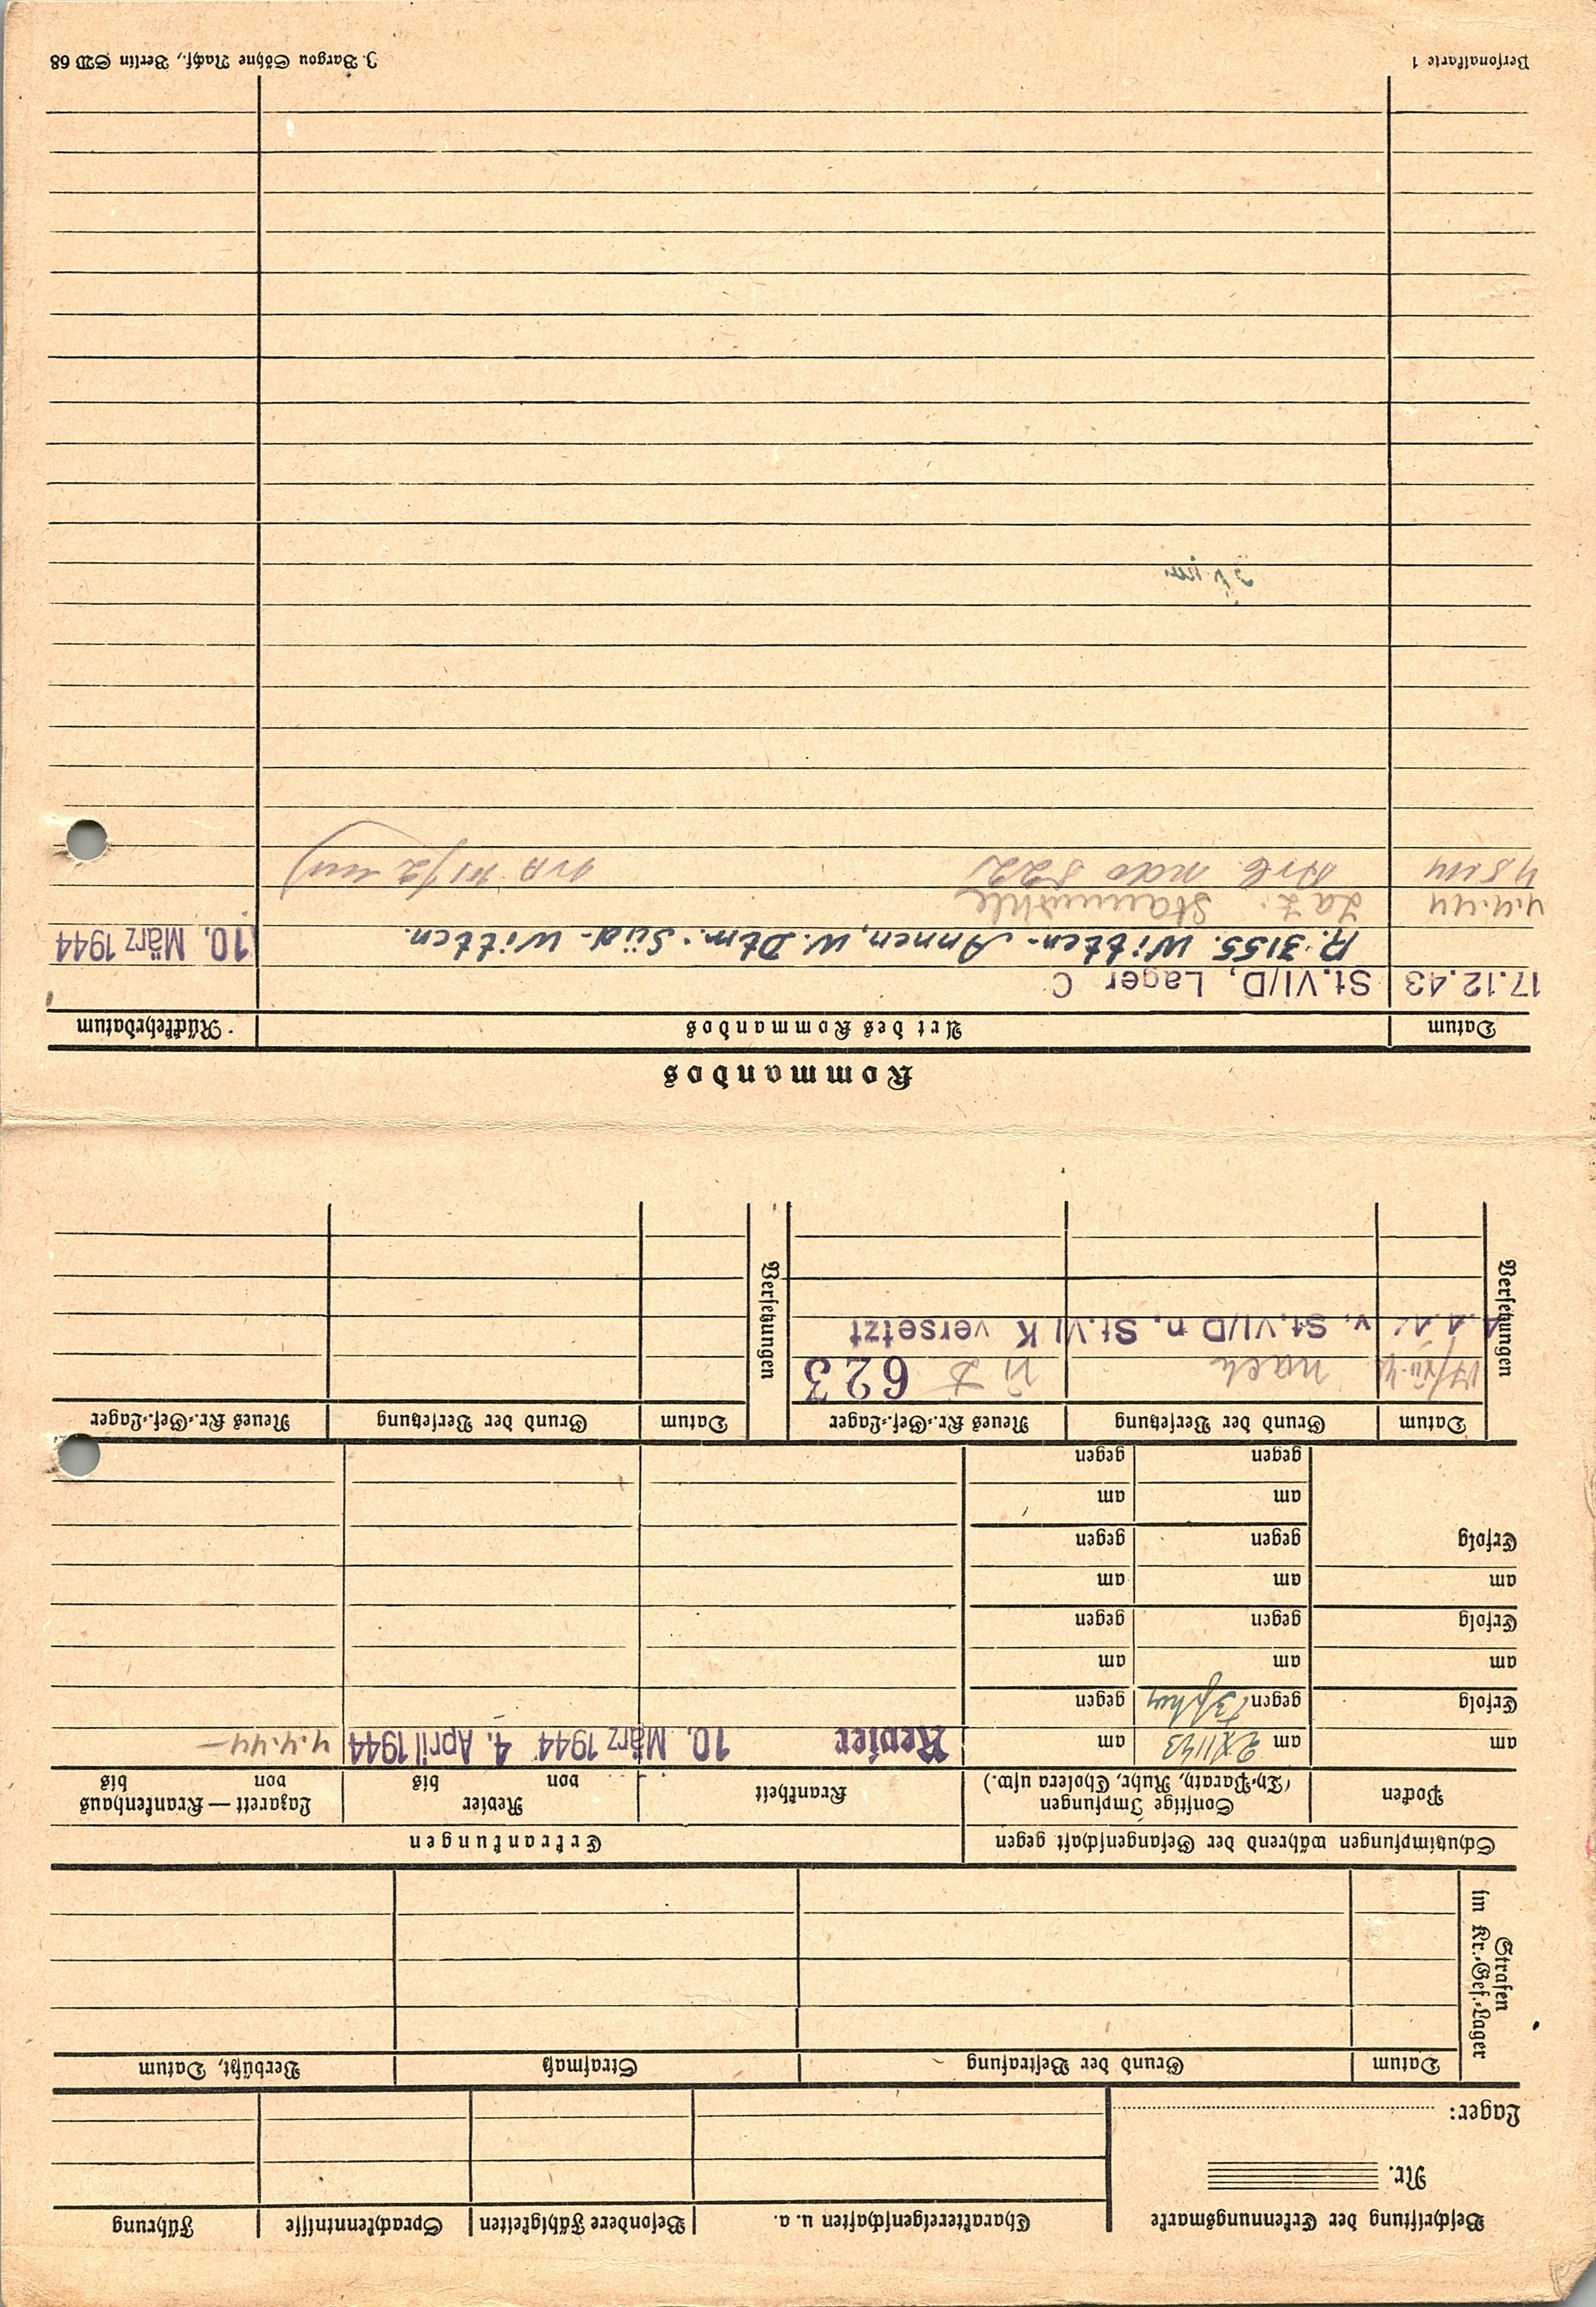 Beschriftung der Erkennungsmarke
Nr.
Lager:
Charaktereigenschaften u. a.
Besondere Fähigkeiten
Sprachkenntnisse
Führung
Strafen im Kr.-Gef.-Lager
Datum
Grund der Bestrafung
Strafmaß
Verbüßt, Datum
Schutzimpfungen während der Gefangenschaft gegen
Erkrankungen
Pocken
Sonstige Impfungen
(Ty.-Paraty., Ruhr, Cholera usw.)
Krankheit
Revier
von bis
Lazarett — Krankenhaus
von bis
am am am
Revier 10. März 1944 4. April 1944 4.4.44 —
Erfolg gegen gegen
am am am
Erfolg gegen gegen
am am am
Erfolg gegen gegen
am am
gegen gegen
Versetzungen
Datum
Grund der Versetzung
Neues Kr.-Gef.-Lager
Versetzungen
Datum
Grund der Versetzung
Neues Kr.-Gef.-Lager
nach VI D 623
v. St. VI/D n. St. VI K versetzt
Kommandos
Datum
Art des Kommandos
Rückkehrdatum
17.12.43 St. VI/D, Lager C
R. 3155. Witten-Annen, W. Dtm.-Süd-Witten. 10. März 1944
4.4.44 Laz. Staumühle
Arb Kdo 522
Personalkarte 1
J. Bargou Söhne Nachf., Berlin SW 68